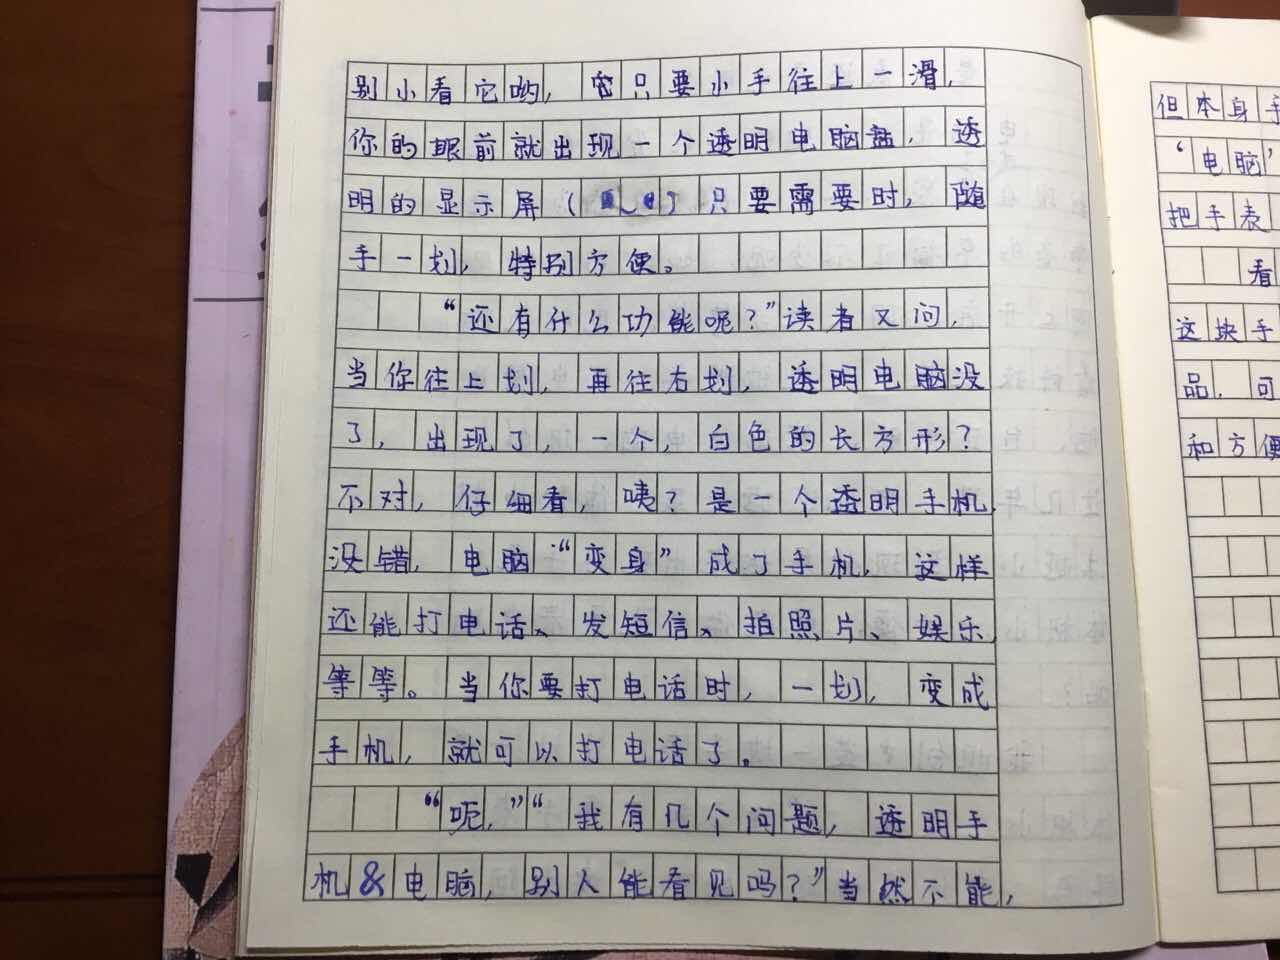 别小看它哟，它只要小手往上一滑，
你的眼前就出现一个透明电脑盘，透
明的显示屏（）只要需要时，随
手一划，特别方便。
“还有什么功能呢？”读者又问，
当你往上划，再往右划，透明电脑没
了，出现了，一个，白色的长方形？
不对，仔细看，咦？是一个透明手机，
没错，电脑“变身”成了手机，这样
还能打电话、发短信、拍照片、娱乐，
等等。当你要打电话时，一划，变成
手机，就可以打电话了。
“呃，”“我有几个问题，透明手
机&电脑，别人能看见吗？”当然不能，
但本身手
“电脑”
把手表
看
这块手
品，可
和方便